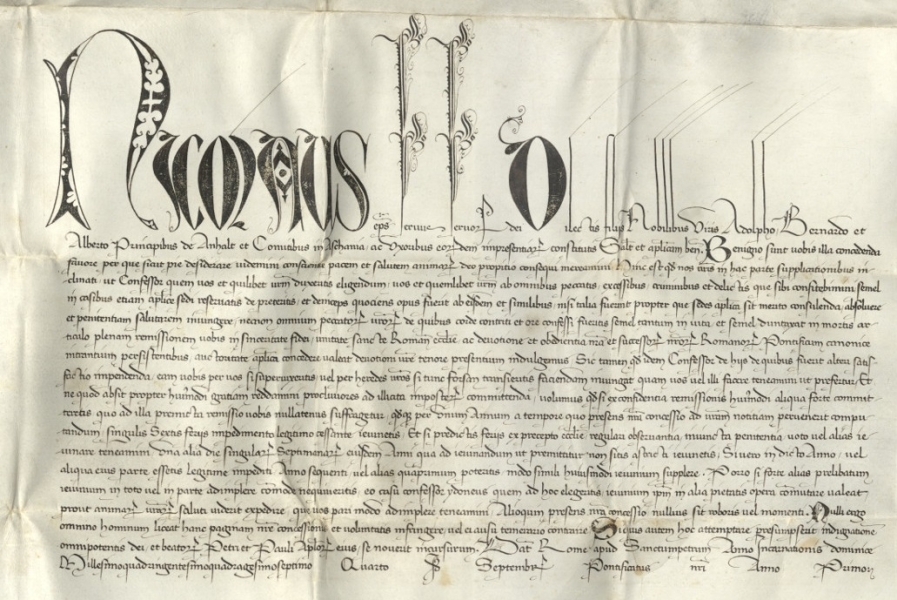 Nicolaus eps servus servor dei Dilectis filijs Nobilibus Viris Adolpho Bernardo et
Alberto Principibus de Anhalt et Comitibus in Aschania ac Uxoribus eordem impresentar constitutis Salt et aplicam ben. Benigno sunt vobis illa concedenda
favore per que sicut pie desiderare videmini conscientie pacem et salutem animar deo propitio consequi mereamini Hinc est qd nos vris in hac parte supplicationibus in
clinati ut Confessor quem vos et quilibet vrm duxeritis eligendum vos et quemlibet vrm ab omnibus peccatis excessibus criminibus et delictis que sibi confitebimini semel
in casibus etiam aplice sedi reservatis de preteritis et deinceps quociens opus fuerit ab eisdem et similibus nisi talia fuerint propter que sedes aplica sit merito consulenda absolvere
et penitentiam salutarem iniungere necnon omnium peccator vror de quibus corde contriti et ore confessi fueritis semel tantum in vita et semel duntaxat in mortis ar
ticulo plenam remissionem vobis in sinceritate fidei unitate sancte Roman ecclie ac devotione et obedientia nra et successor nror Romanor Pontificum canonice
intrantium persistentibus auctoritate aplica concedere valeat devotioni vre tenore presentium indulgemus Sic tamen qd idem Confessor de hijs de quibus fuerit alteri satis
factio impendenda eam vobis per vos si supervixeritis vel per heredes vros si tunc forsan transieritis faciendam iniungat quam vos vel illi facere teneamini ut prefertur Et
ne quod absit propter huiusmodi gratiam reddamini procliviores ad illicita imposterum committenda volumus qd si ex confidentia remissionis huiusmodi aliqua forte commit
teretis quo ad illa premissa remissio vobis nullatenus suffragetur qdqz per Unum Annum a tempore quo presens nra concessio ad vram notitiam pervenerit compu
tandum singulis Sextis ferijs impedimento legitimo cessante ieiunetis Et si predictis ferijs ex precepto ecclie regulari observantia iniuncta penitentia voto vel alias ie
iunare teneamini Una alia die singular Septimanar eiusdem Anni qua ad ieiunandum ut premittitur non sitis astricti ieiunetis Si vero in dicto Anno vel
aliqua eius parte essetis legitime impediti Anno sequenti vel alias quamprimum poteritis modo simili huiusmodi ieiunium supplere Porro si forte alias prelibatum
ieiunium in toto vel in parte adimplere comode nequiveritis eo casu confessor ydoneus quem ad hoc elegeritis ieiunium ipm in alia pietatis opera comutare valeat
prout animar vrar saluti viderit expedire que vos pari modo adimplere teneamini Alioquin presens nra concessio nullius sit roboris vel momenti Nulli ergo
omnino hominum liceat hanc paginam nre concessionis et voluntatis infringere vel ei ausu temerario contraire Siquis autem hoc attemptare presumpserit indignationem
omnipotentis dei et beator Petri et Pauli Aplor eius se noverit incursurum Dat Rome apud Sanctumpetrum Anno Incarnationis dominice
Millesimoquadringentesimoquadragesimoseptimo Quarto Septembr Pontificatus nri Anno Primo